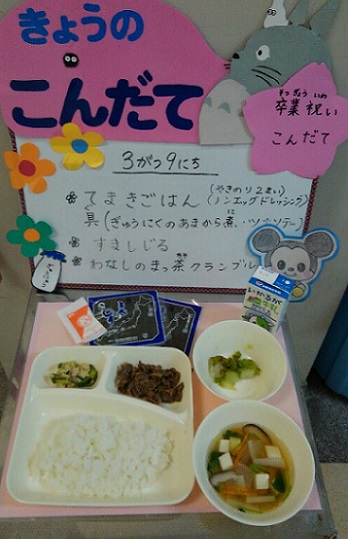 きょうの
こんだて
そつぎょう いわ
卒業祝い
こんだて
3がつ9にち
てまきごはん (やきのり2まい)
(ノンエッグドレッシング)
具(ぎゅうにくのあまから煮・ツナソテー)
すましじる
わなしのまっ茶クランブル